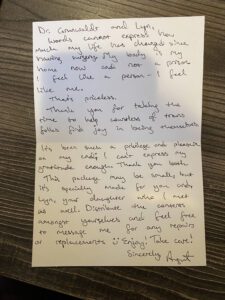 Dr. and Lyn,
Words cannot express how
much my life has changed since
having surgery. My body is my
home now and not a prison
I feel like a person - I feel
like me.
That's priceless.
Thank you for taking the
time to help countless of trans
folks find joy in being themselves.
It's been such a privilege and pleasure
on my end; I can't express my
gratitude enough. Thank you both.
This package may be small, but
it's specially made for you and
Lyn, your daughter who I meet
as well. Distribute the contents
amongst yourselves and feel free
to message me for any repairs
or replacements Enjoy! Take care!
Sincerely,